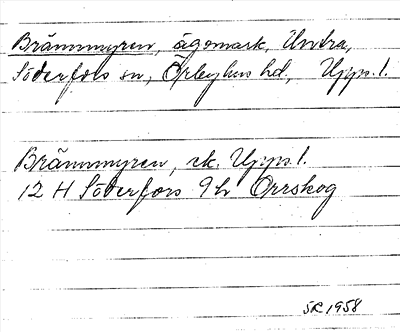 Brännmyren, ägomark, Untra,
Söderfors sn, Örbyhus hd, Upps. l.
Brännmyren, ek. Upps. l.
12 H Söderfors 9 b Orrskog
SR 1958